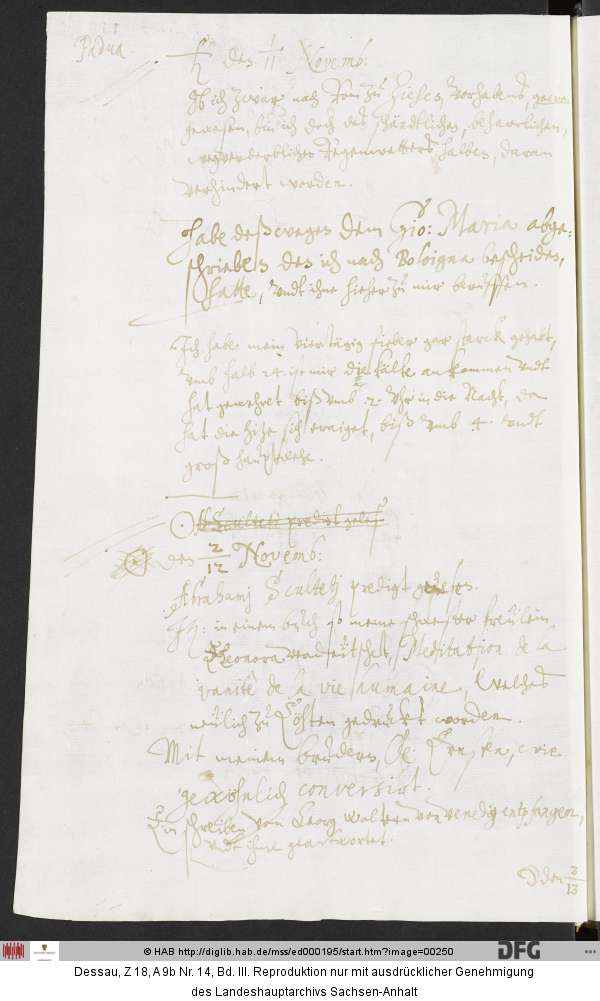 Padua.
♄ den 1/11 Novemb:
Ob ich zwar nach Rom zu ziehen, vorhabens,
gewesen, bin ich doch des schändtlichen, beharrlichen,
wegverderblichen Regenwetters halben, daran
verhindert worden.
Habe deßwegen dem Gio: Maria abge-
schrieben den ich nach Boloigna bescheiden,
hatte, undt ihne hieher zu mir beruffen.
Ich habe mein viertägig fieber gar starck gehabt,
umb halb 24 ist mir die kälte ankommen undt
hat gewehret biß umb 2 Uhr in die Nacht, da
hat die hitze sich eraiget, biß umb 4. undt
groß hauptwehe.
☉ Sculteti predigt geles
☉ den 2/12 Novemb:
Abrahamj Scultetj predigt gelesen.
It: in einem buch so meine schwester freulein
Eleonora verdeutschet, Meditation de la
vanité de la vie humaine, welches
neulich zu Cöthen gedruckt worden.
Mit meinem bruder, Ernsten, wie
gewöhnlich conversirt.
Ein schreiben von Georg Waltern von Venedig entpfangen,
undt ihme geantwortet.
☽ den 3/13
© HAB http://diglib.hab.de/mss/ed000195/start.htm?image=00250
DFG
Dessau, Z 18, A 9b Nr. 14, Bd. III. Reproduktion nur mit ausdrücklicher Genehmigung
des Landeshauptarchivs Sachsen-Anhalt